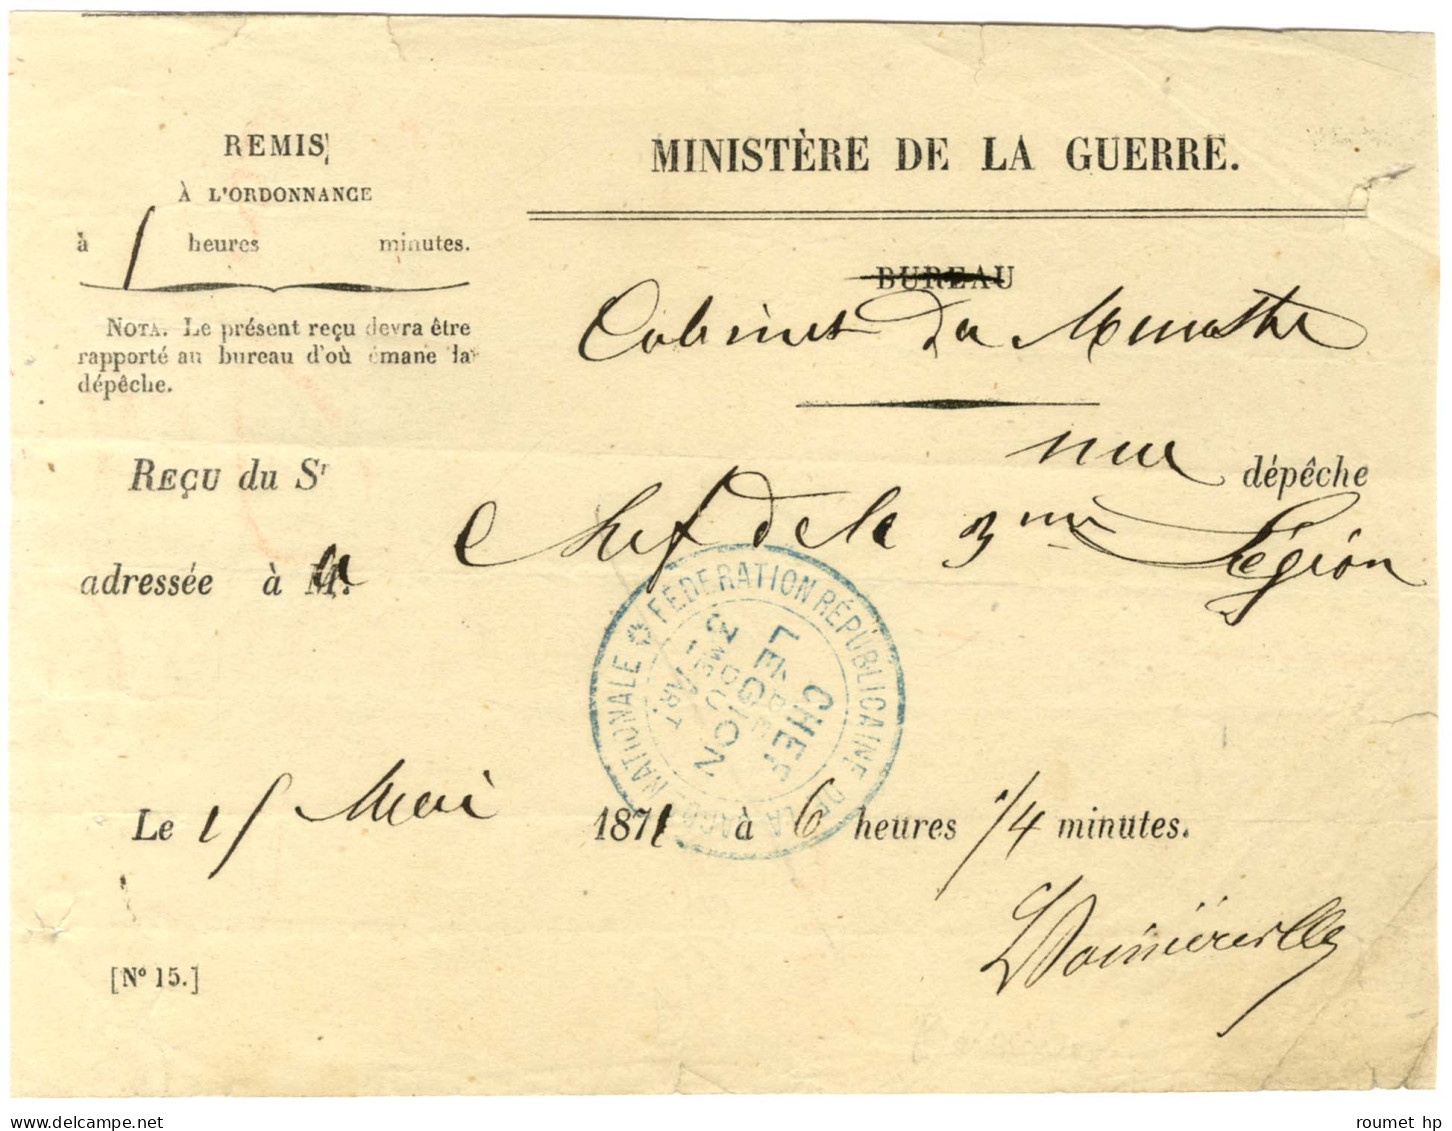 REMIS
À L'ORDONNANCE
à heures minutes.
NOTA. Le présent reçu devra être
rapporté au bureau d'où émane la
dépêche.
MINISTÈRE DE LA GUERRE.
BUREAU
Cabinet du Ministre
REÇU du Sr une dépêche
adressée à M. Chef de la 3me Légion
FÉDÉRATION RÉPUBLICAINE DE LA GARDE NATIONALE
CHEF
DE LA
LEGION
3me
ART
Le 15 Mai 1871 à 6 heures 1/4 minutes.
[N° 15.]
roumet hp